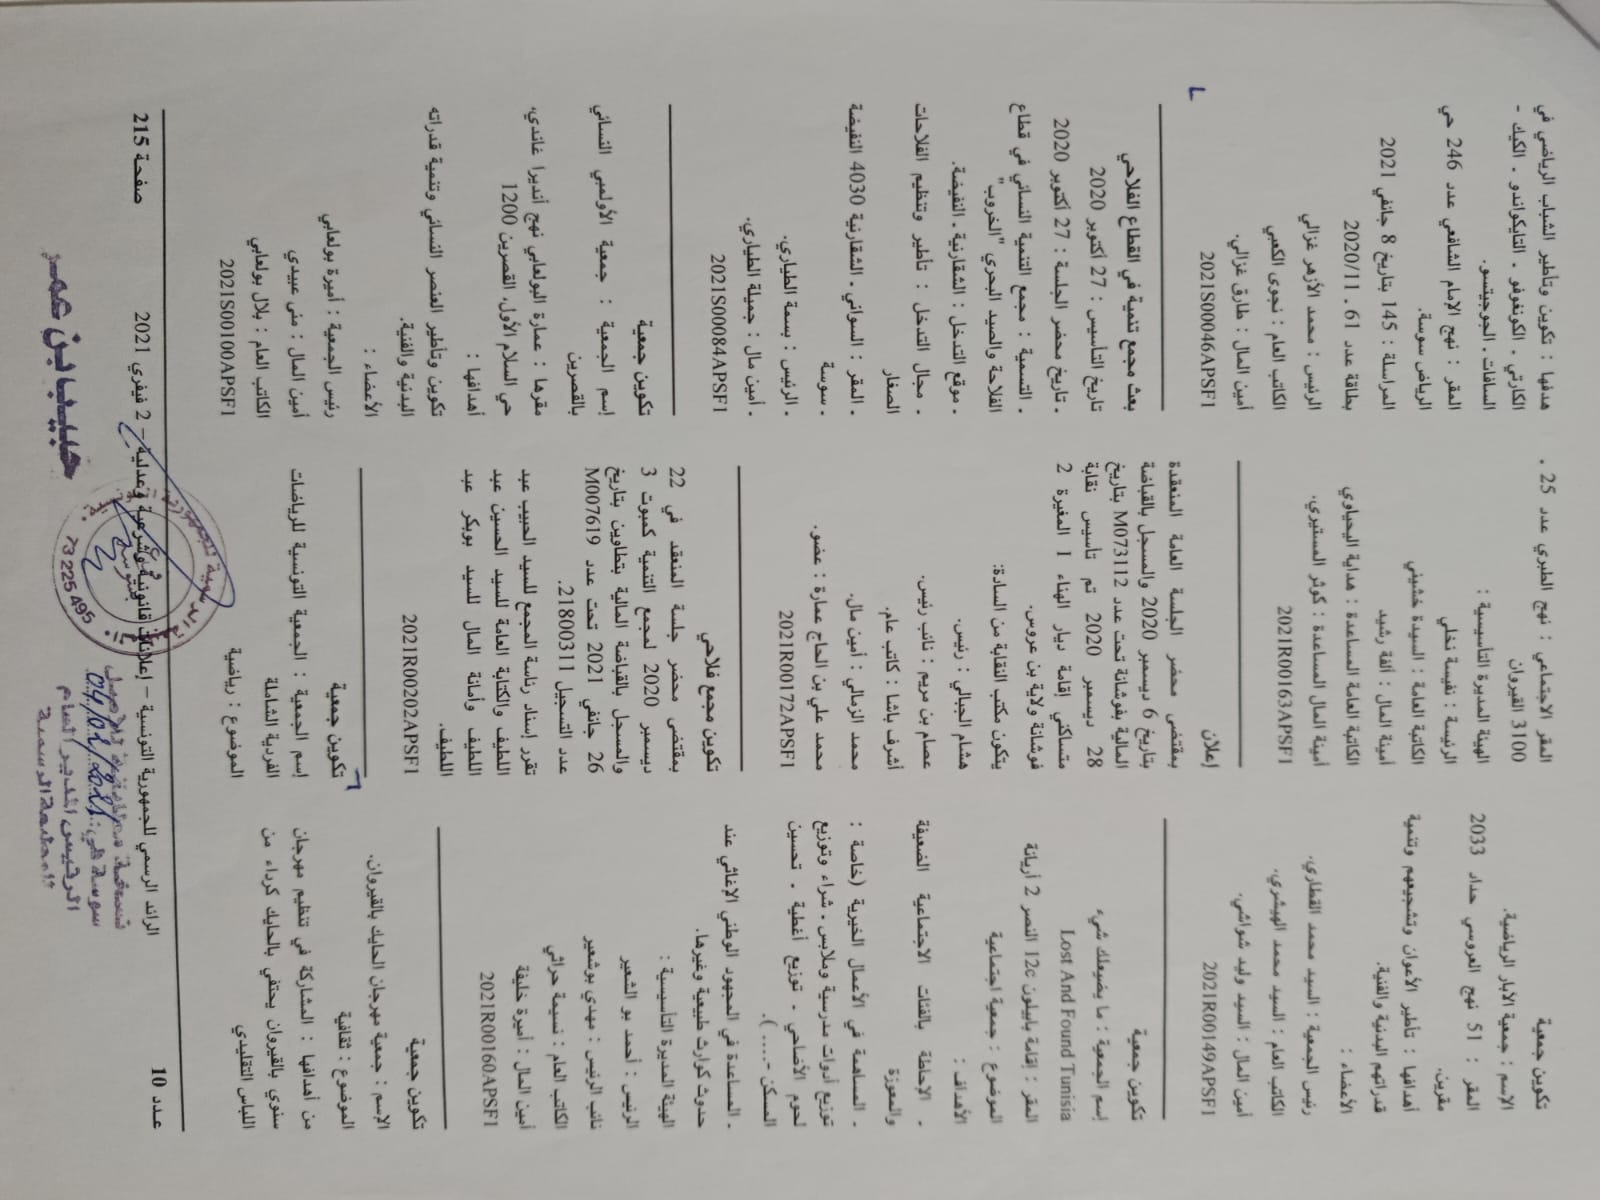 تكوين جمعية
الاسم : جمعية الابار الرياضية.
المقر : 51 نهج العروسي حداد 2033
مقرين.
أهدافها : تأطير الأعوان وتشجيعهم وتنمية
قدراتهم البدنية والفنية.
الأعضاء :
رئيس الجمعية : السيد محمد القطاري.
الكاتب العام : السيد محمد الهيشري.
أمين المال : السيد وليد شواشي.
2021R00149APSF1
تكوين جمعية
إسم الجمعية : ما يضيعلك شيء
Lost And Found Tunisia
المقر : إقامة بابيلون 12c النصر 2 أريانة
الموضوع : جمعية اجتماعية
الأهداف :
- الاحاطة بالفئات الاجتماعية الضعيفة
والمعوزة
- المساهمة في الأعمال الخيرية (خاصة :
توزيع أدوات مدرسية وملابس - شراء وتوزيع
لحوم الأضاحي - توزيع أغطية - تحسين
المسكن -.... ).
- المساعدة في المجهود الوطني الإغاثي عند
حدوث كوارث طبيعية وغيرها.
الهيئة المديرة التأسيسية :
الرئيس : أحمد بو الشعير
نائب الرئيس : مهدي بوشعير
الكاتب العام : نسيمة حراثي
أمين المال : أميرة خليفة
2021R00160APSF1
تكوين جمعية
الإسم : جمعية مهرجان الحايك بالقيروان.
الموضوع : ثقافية
من أهدافها : المشاركة في تنظيم مهرجان
سنوي بالقيروان يحتفي بالحايك كرداء من
اللباس التقليدي
المقر الاجتماعي : نهج الطبري عدد 25 -
3100 القيروان
الهيئة المديرة التأسيسية :
الرئيسة : نفيسة نخلي
الكاتبة العامة : السيدة خشيني
أمينة المال : ألفة رشيد
الكاتبة العامة المساعدة : هداية اليحياوي
أمينة المال المساعدة : كوثر المستيري.
2021R00163APSF1
إعلان
بمقتضى محضر الجلسة العامة المنعقدة
بتاريخ 6 ديسمبر 2020 والمسجل بالقباضة
المالية بفوشانة تحت عدد M073112 بتاريخ
28 ديسمبر 2020 تم تاسيس نقابة
متساكني إقامة ديار الهناء 1 المغيرة 2
فوشانة ولاية بن عروس.
يتكون مكتب النقابة من السادة:
هشام الجبالي : رئيس.
عصام بن مريم : نائب رئيس.
أشرف باشا : كاتب عام.
محمد الزمالي : أمين مال.
محمد علي بن الحاج عمارة : عضو.
2021R00172APSF1
تكوين مجمع فلاحي
بمقتضى محضر جلسة المنعقد في 22
ديسمبر 2020 لمجمع التنمية كمبوت 3
والمسجل بالقباضة المالية بتطاوين بتاريخ
26 جانفي 2021 تحت عدد M007619
عدد التسجيل 21800311.
تقرر إسناد رئاسة المجمع للسيد الحبيب عبد
اللطيف والكتابة العامة للسيد الحسين عبد
اللطيف وأمانة المال للسيد بوبكر عبد
اللطيف.
2021R00202APSF1
تكوين جمعية
إسم الجمعية : الجمعية التونسية للرياضات
الفردية الشاملة
الموضوع : رياضية
هدفها : تكوين وتأطير الشباب الرياضي في
الكارتي - الكونغوفو - التايكواندو - الكيك -
السافات - الجوجيتسو.
المقر : نهج الإمام الشافعي عدد 246 حي
الرياض سوسة.
المراسلة : 145 بتاريخ 8 جانفي 2021
بطاقة عدد 61 - 2020/11
الرئيس : محمد الأزهر غزالي
الكاتب العام : نجوى الكعبي
أمين المال : طارق غزالي.
2021S00046APSF1
بعث مجمع تنمية في القطاع الفلاحي
تاريخ التأسيس : 27 أكتوبر 2020
- تاريخ محضر الجلسة : 27 أكتوبر 2020
- التسمية : مجمع التنمية النسائي في قطاع
الفلاحة والصيد البحري "الخروب"
- موقع التدخل : الشقارنية - النفيضة.
- مجال التدخل : تأطير وتنظيم الفلاحات
الصغار
- المقر : السواني - الشقارنية 4030 النفيضة
- سوسة
- الرئيس : بسمة الطياري.
- أمين مال : جميلة الطياري.
2021S00084APSF1
تكوين جمعية
إسم الجمعية : جمعية الأولمبي النسائي
بالقصرين
مقرها : عمارة البولعابي نهج أنديرا غاندي،
حي السلام الأول، القصرين 1200
أهدافها :
تكوين وتأطير العنصر النسائي وتنمية قدراته
البدنية والفنية.
الأعضاء :
رئيس الجمعية : أميرة بولعابي
أمين المال : منى عبيدي
الكاتب العام : بلال بولعابي
2021S00100APSF1
عـدد 10 الرائد الرسمي للجمهورية التونسية – إعلانات قانونية وشرعية وعدلية – 2 فيفري 2021 صفحة 215
نسخة مطابقة للأصل
سوسة في: 04/02/2021
الرئيس المدير العام
للمطبعة الرسمية
73 225 495
حبيب بن عمر